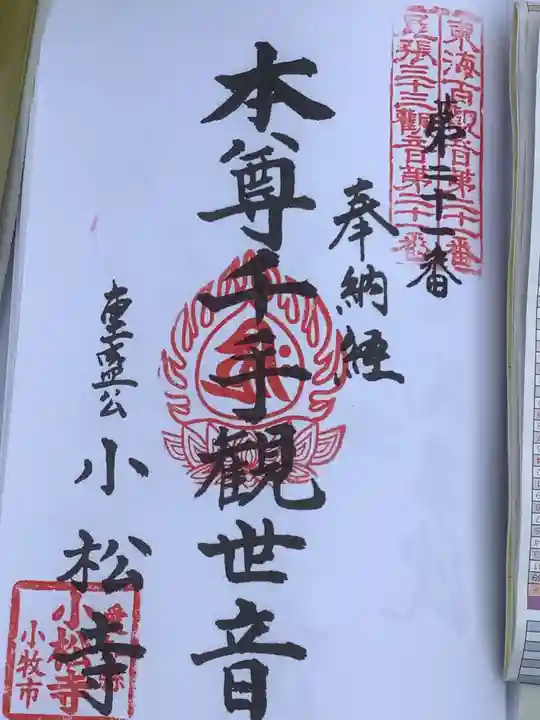 東海百觀音第二十一番
尾張三十三觀音第二十一番
第二十一番
奉納経
本尊千手觀世音
重盛公
小松寺
愛知県
小松寺
小牧市